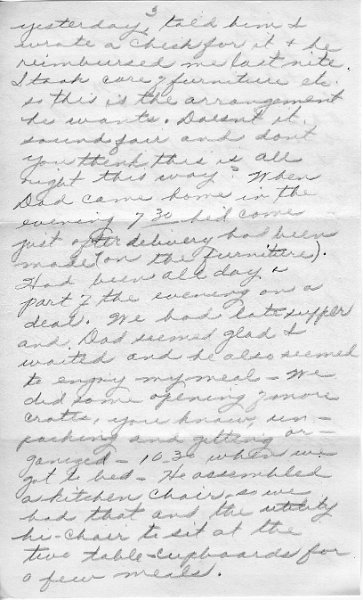 3
yesterday, told him I
wrote a check for it & he
reimbursed me last nite.
I took care of furniture etc.
so this is the arrangement
he wants. Doesn't it
sound fair and don't
you think this is all
right this way? When
Dad came home in the
evening 7 30 he'd come
just after delivery had been
made (on the furniture).
Had been all day &
part of the evening on a
deal. We had late supper
and Dad seemed glad I
waited and he also seemed
to enjoy my meal - We
did some opening of more
crates, you know, un-
packing and getting or-
ganized - 10 30 when we
got to bed - He assembled
a kitchen chair - so we
had that and the utility
hi-chair to sit at the
two table-cupboards for
a few meals.